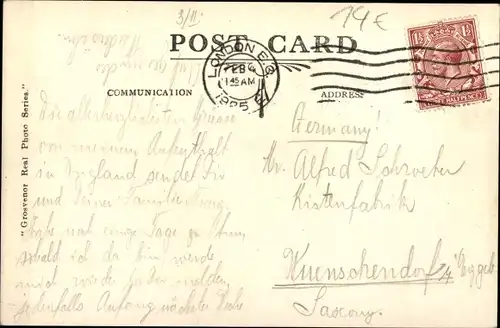 3/II.
14€
POST CARD
LONDON E.C.
FEB 4
11 45 AM
1925
COMMUNICATION
ADDRESS
"Grosvenor Real Photo Series."
Die allerherzlichsten Grüsse
von meinem Aufenthalt
in England sendet Dir
und Deiner Familie Franz.
habe noch einige Tage zu thun,
sobald ich da bin, werde
mich wieder melden,
jedenfalls Anfang nächster Woche
Germany!
Mr. Alfred Schroeter
Kistenfabrik
Wuenschendorf i/ Erzgeb.
Saxony.